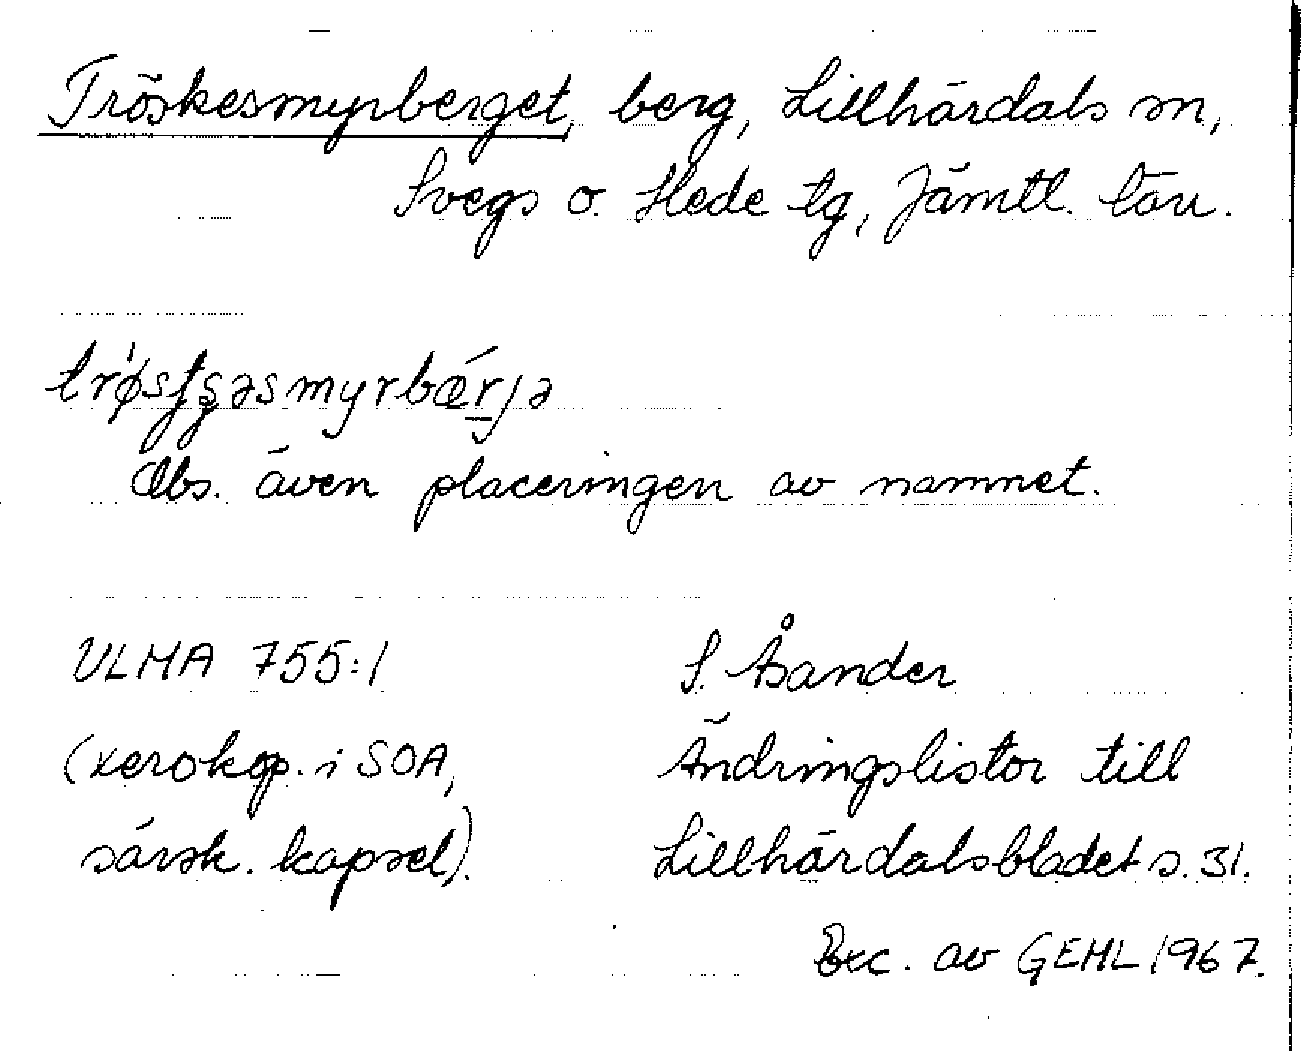 Tröskesmyrberget, berg, Lillhärdals sn,
Svegs o. Hede tg, Jämtl. län.
Obs. även placeringen av namnet.
ULMA 755:1
S. Åsander
(xerokop. i SOA,
Ändringslistor till
särsk. kapsel).
Lillhärdalsbladet s. 31.
Exc. av GEHL 1967.